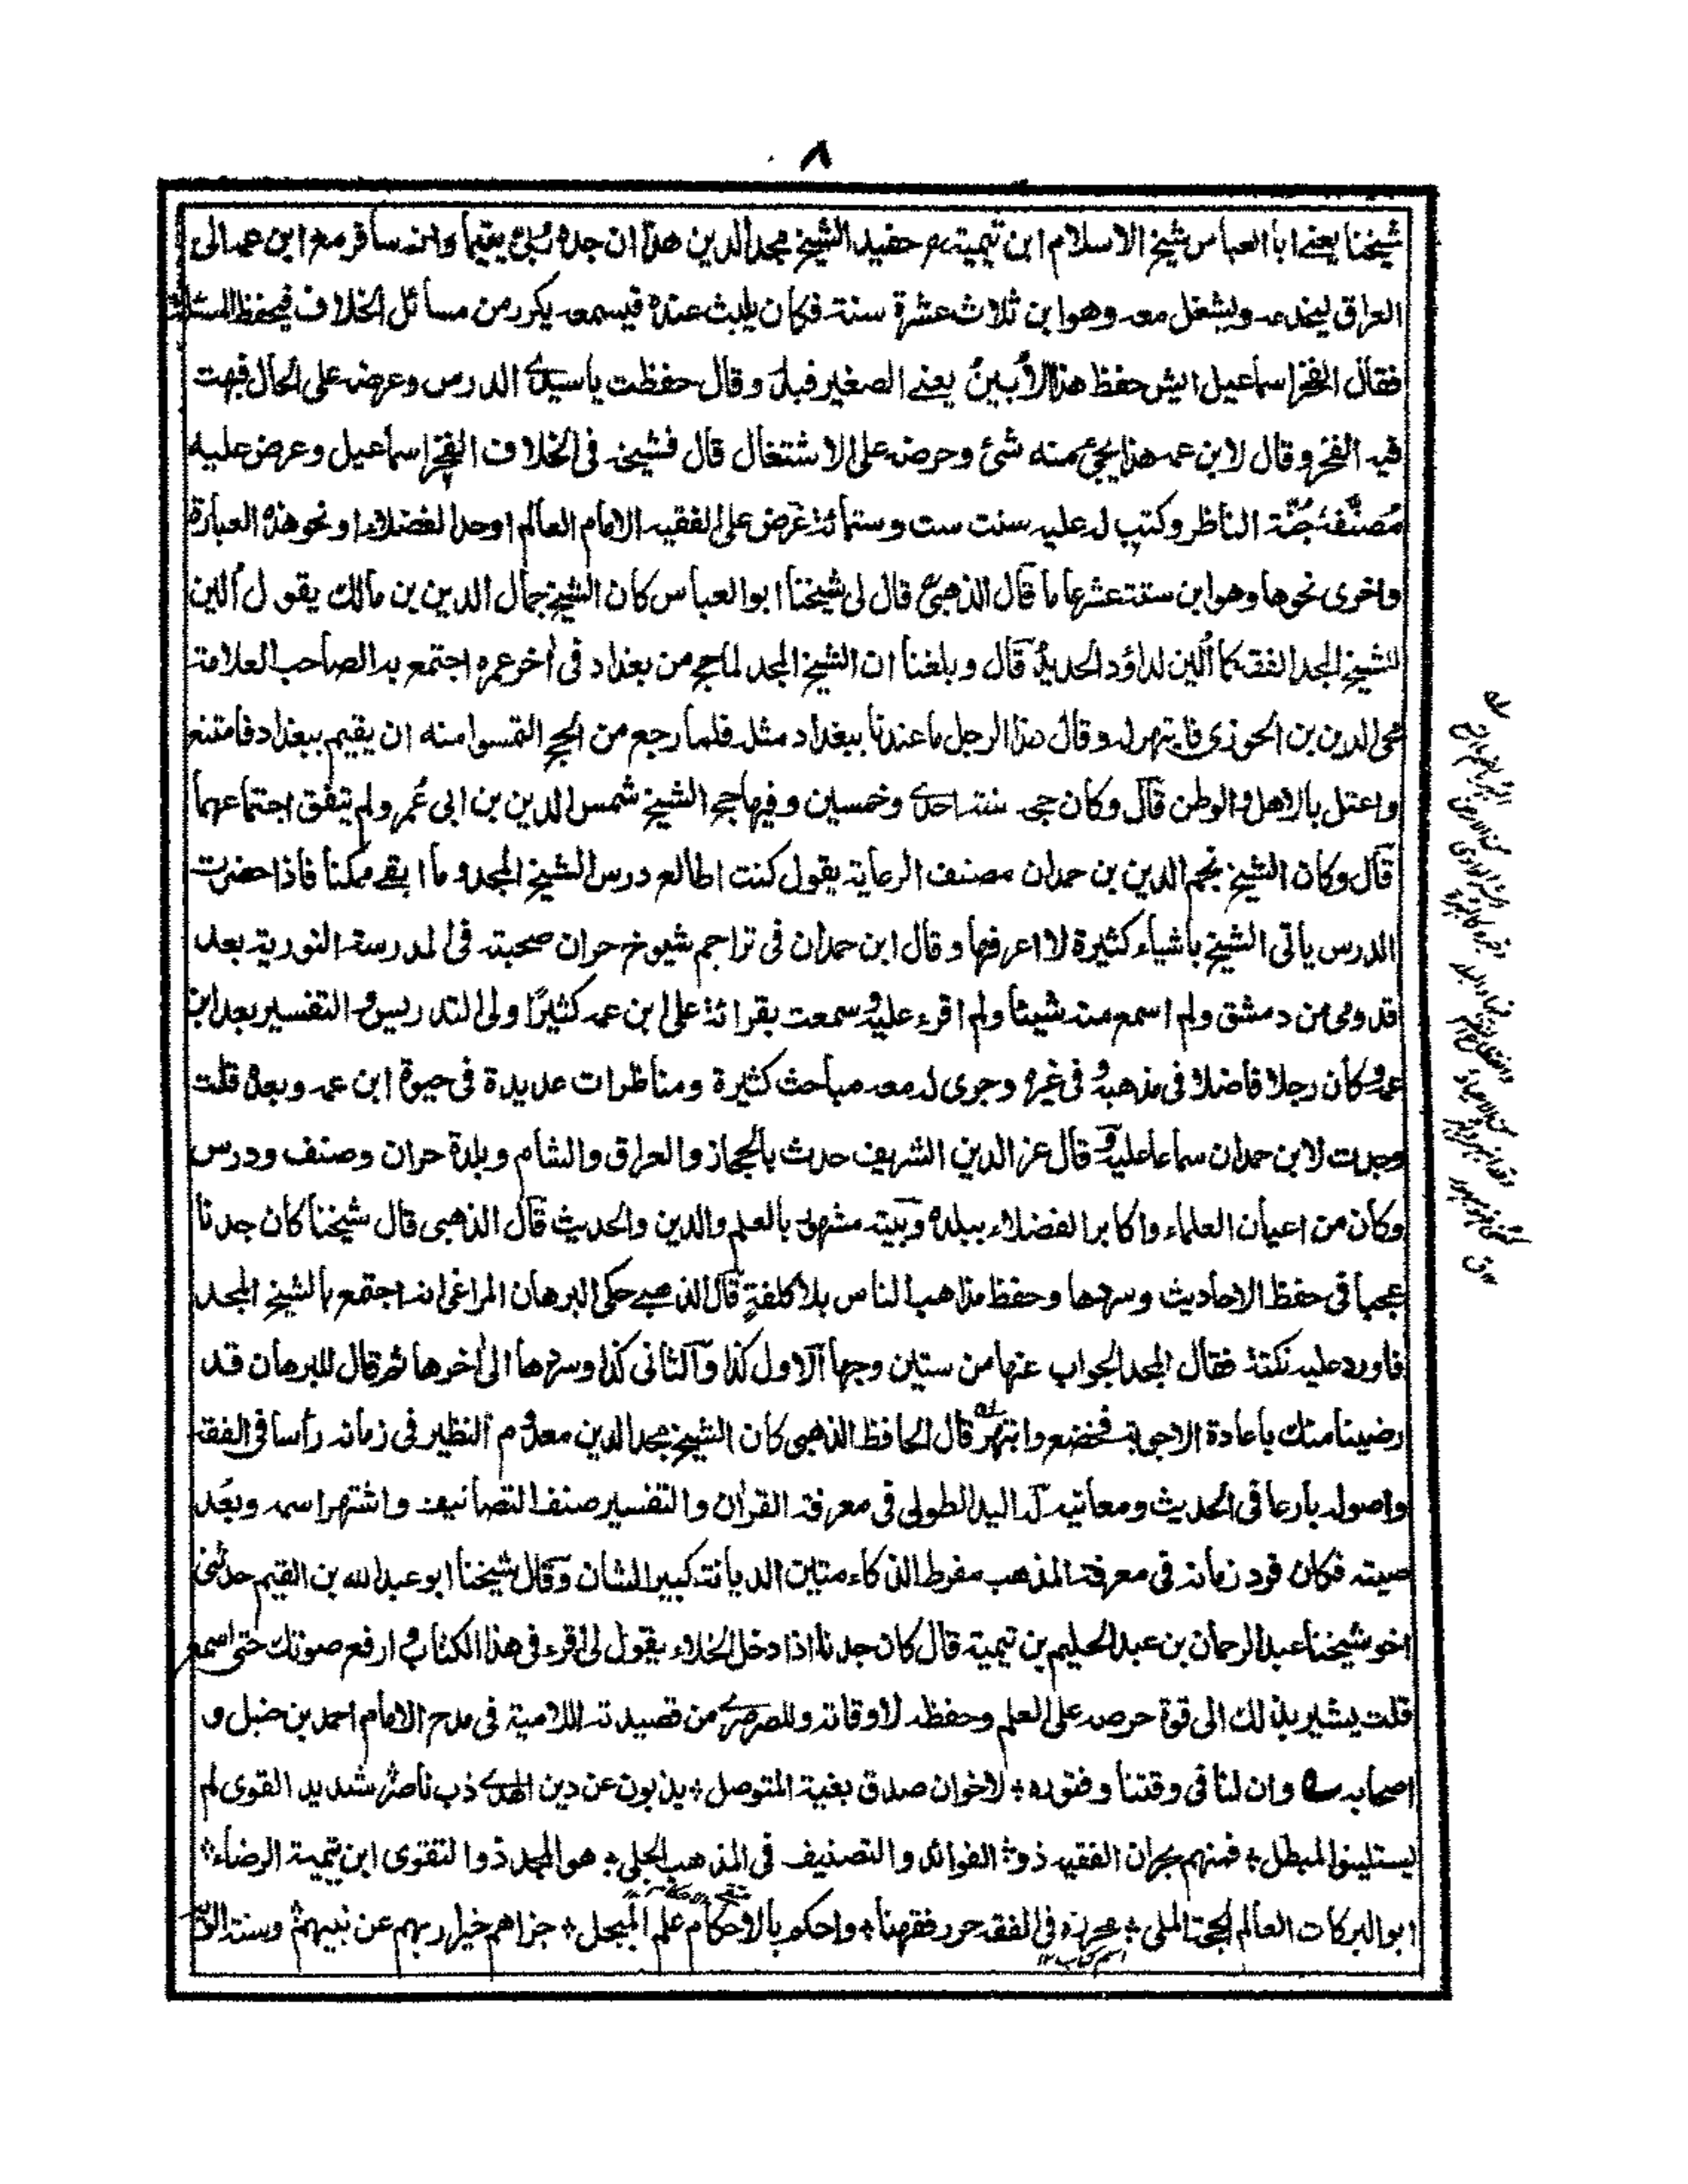 ٨
شيخنا يعنى ابا العباس شيخ الاسلام ابن تيمية حفيد الشيخ مجد الدين هذا ان جده ربى يتيما وانه سافر مع ابن عمه الى
العراق ليخدمه ويشتغل معه وهو ابن ثلاث عشرة سنة فكان يلبث عنده فيسمعه يكرر من مسائل الخلاف فيحفظ المسئلة
فقال الفخر اسماعيل ايش حفظ هذا الأُبَيْنُ يعنى الصغير فبدر وقال حفظت ياسيدى الدرس وعرضه على الحال فبهت
فيه الفخر وقال لابن عمه هذا يجئ منه شئ وحرضه على الاشتغال قال فشيخه فى الخلاف الفخر اسماعيل وعرض عليه
مُصَنَّفه جُنّة الناظر وكتب له عليه سنت ست وستمائة عرض على الفقيه الامام العالم اوحد الفضلاء ونحو هذه العبارة
واخرى نحوها وهو ابن ستة عشر عاما قال الذهبى قال لى شيخنا ابو العباس كان الشيخ جمال الدين بن مالك يقول أُلين
للشيخ المجد الفقه كما أُلين لداؤد الحديد قال وبلغنا ان الشيخ المجد لما حج من بغداد فى أخر عمره اجتمع به الصاحب العلامة
محى الدين بن الجوزى فانبهر له وقال هذا الرجل ما عندنا ببغداد مثله فلما رجع من الحج التمسوا منه ان يقيم ببغداد فامتنع
واعتل بالاهل والوطن قال وكان حجه سنة احدى وخمسين وفيها حج الشيخ شمس الدين بن ابى عُمر ولم يتفق اجتماعهما
قال وكان الشيخ نجم الدين بن حمدان مصنف الرعاية يقول كنت اطالع درس الشيخ المجد وما ابقى ممكنا فاذا حضرت
الدرس ياتى الشيخ باشياء كثيرة لا اعرفها وقال ابن حمدان فى تراجم شيوخ حران صحبته فى المدرسة النورية بعد
قدومى من دمشق ولم اسمع منه شيئا ولم اقرء عليه وسمعت بقرائة على ابن عمه كثيرًا ولى التدريس والتفسير بعد ابن
عمه وكان رجلا فاضلا فى مذهبه وفى غيره وجرى له معه مباحث كثيرة ومناظرات عديدة فى حيوة ابن عمه وبعده قلت
وجدت لابن حمدان سماعا عليه وقال عز الدين الشريف حدث بالحجاز والعراق والشام وبلدة حران وصنف ودرس
وكان من اعيان العلماء واكابر الفضلاء ببلده وبيته مشهور بالعلم والدين والحديث قال الذهبى قال شيخنا كان جدنا
عجبا فى حفظ الاحاديث وسردها وحفظ مذاهب الناس بلا كلفةٍ قال الذهبى حكى البرهان المراغى انه اجتمع بالشيخ المجد
فاورد عليه نكتة فقال المجد الجواب عنها من ستين وجها الاول كذا والثانى كذا وسردها الى أخرها ثم قال للبرهان قد
رضينا منك باعادة الاجوبة فخضع وانبهر قال الحافظ الذهبى كان الشيخ مجد الدين معدوم النظير فى زمانه رأسا فى الفقه
واصوله بارعا فى الحديث ومعانيه له اليد الطولى فى معرفة القران والتفسير صنف التصانيف واشتهر اسمه وبَعُد
صيته فكان فرد زمانه فى معرفة المذهب مفرط الذكاء متين الديانة كبير الشان وقال شيخنا ابو عبد الله بن القيم حدثنى
اخو شيخنا عبد الرحمان بن عبد الحليم بن تيمية قال كان جدنا اذا دخل الخلاء يقول لى اقرء فى هذا الكتاب وارفع صوتك حتى اسمع
قلت يشير بذلك الى قوة حرصه على العلم وحفظه لاوقاته وللصرصرى من قصيدته اللامية فى مدح الامام احمد بن حنبل و
اصحابه وان لنا فى وقتنا وفتوره ؛ لاخوان صدق بغية المتوصل ؛ يذبون عن دين الهدى ذب ناصر شديد القوى لم
يستلينوا لمبطل ؛ فمنهم بحران الفقيه ذو الفوائد والتصنيف فى المذهب الجلى ؛ هو المجد ذو التقوى ابن تيمية الرضاء ؛
ابو البركات العالم الحجة الملى ؛ محرره فى الفقه حرر فقهنا ؛ واحكم بالاحكام علم المبجل ؛ جزاهم خيرا ربهم عن نبيهم وسنة
اسم كتاب ١٢